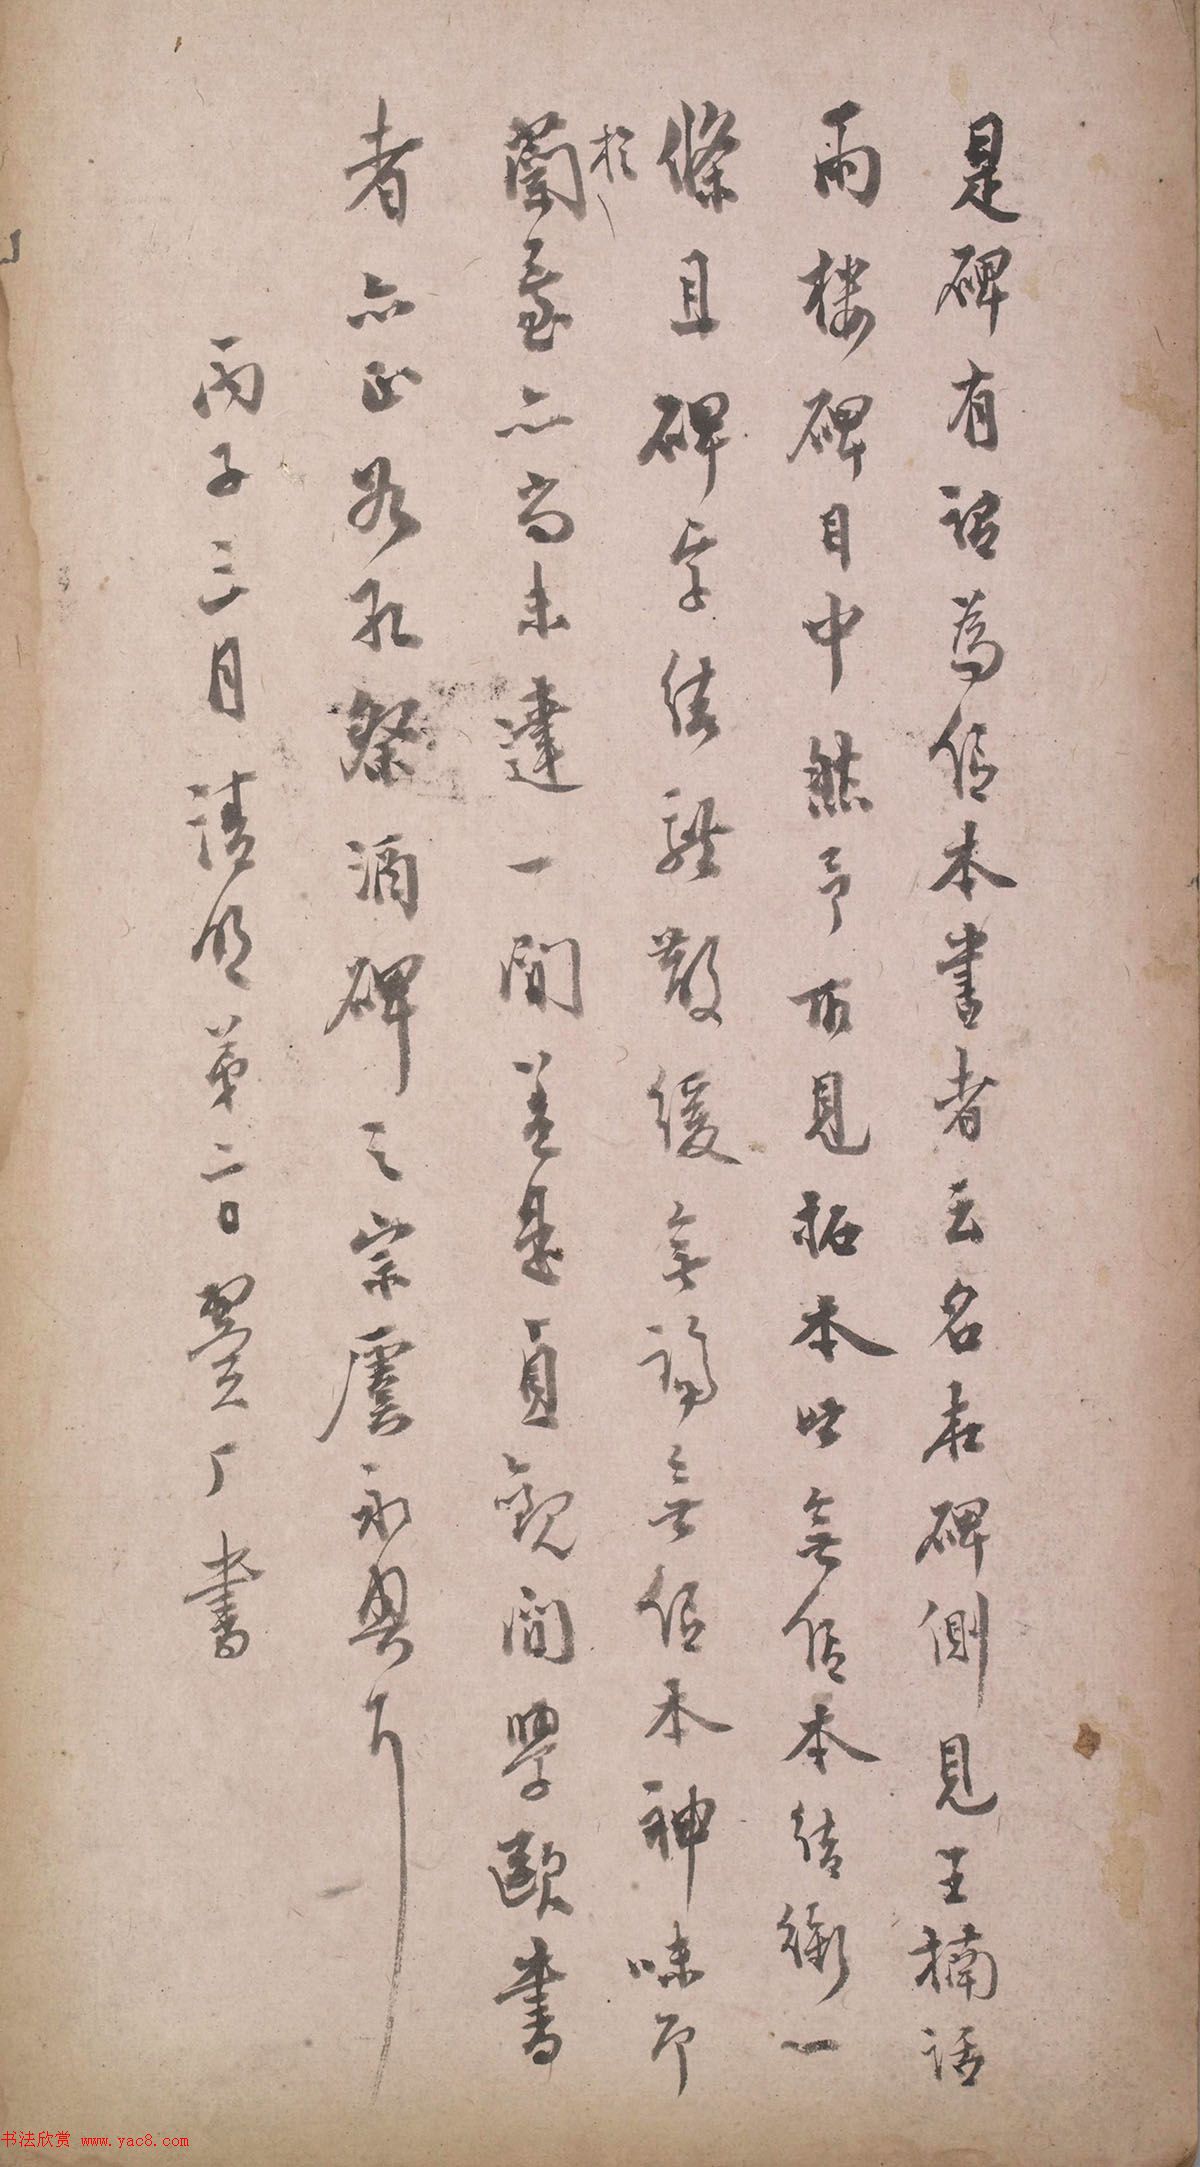 是碑有認為信本書者云名在碑側見王楠話
雨樓碑目中然予所見拓本皆無信本結銜一
條且碑字結體散緩無論無信本神味即
於蘭臺亦尚未達一間蓋是貞觀間學歐書
者亦正如孔祭酒碑之宗虞永興耳
丙子三月清明第二日翼厂書
书法欣赏 www.yac8.com